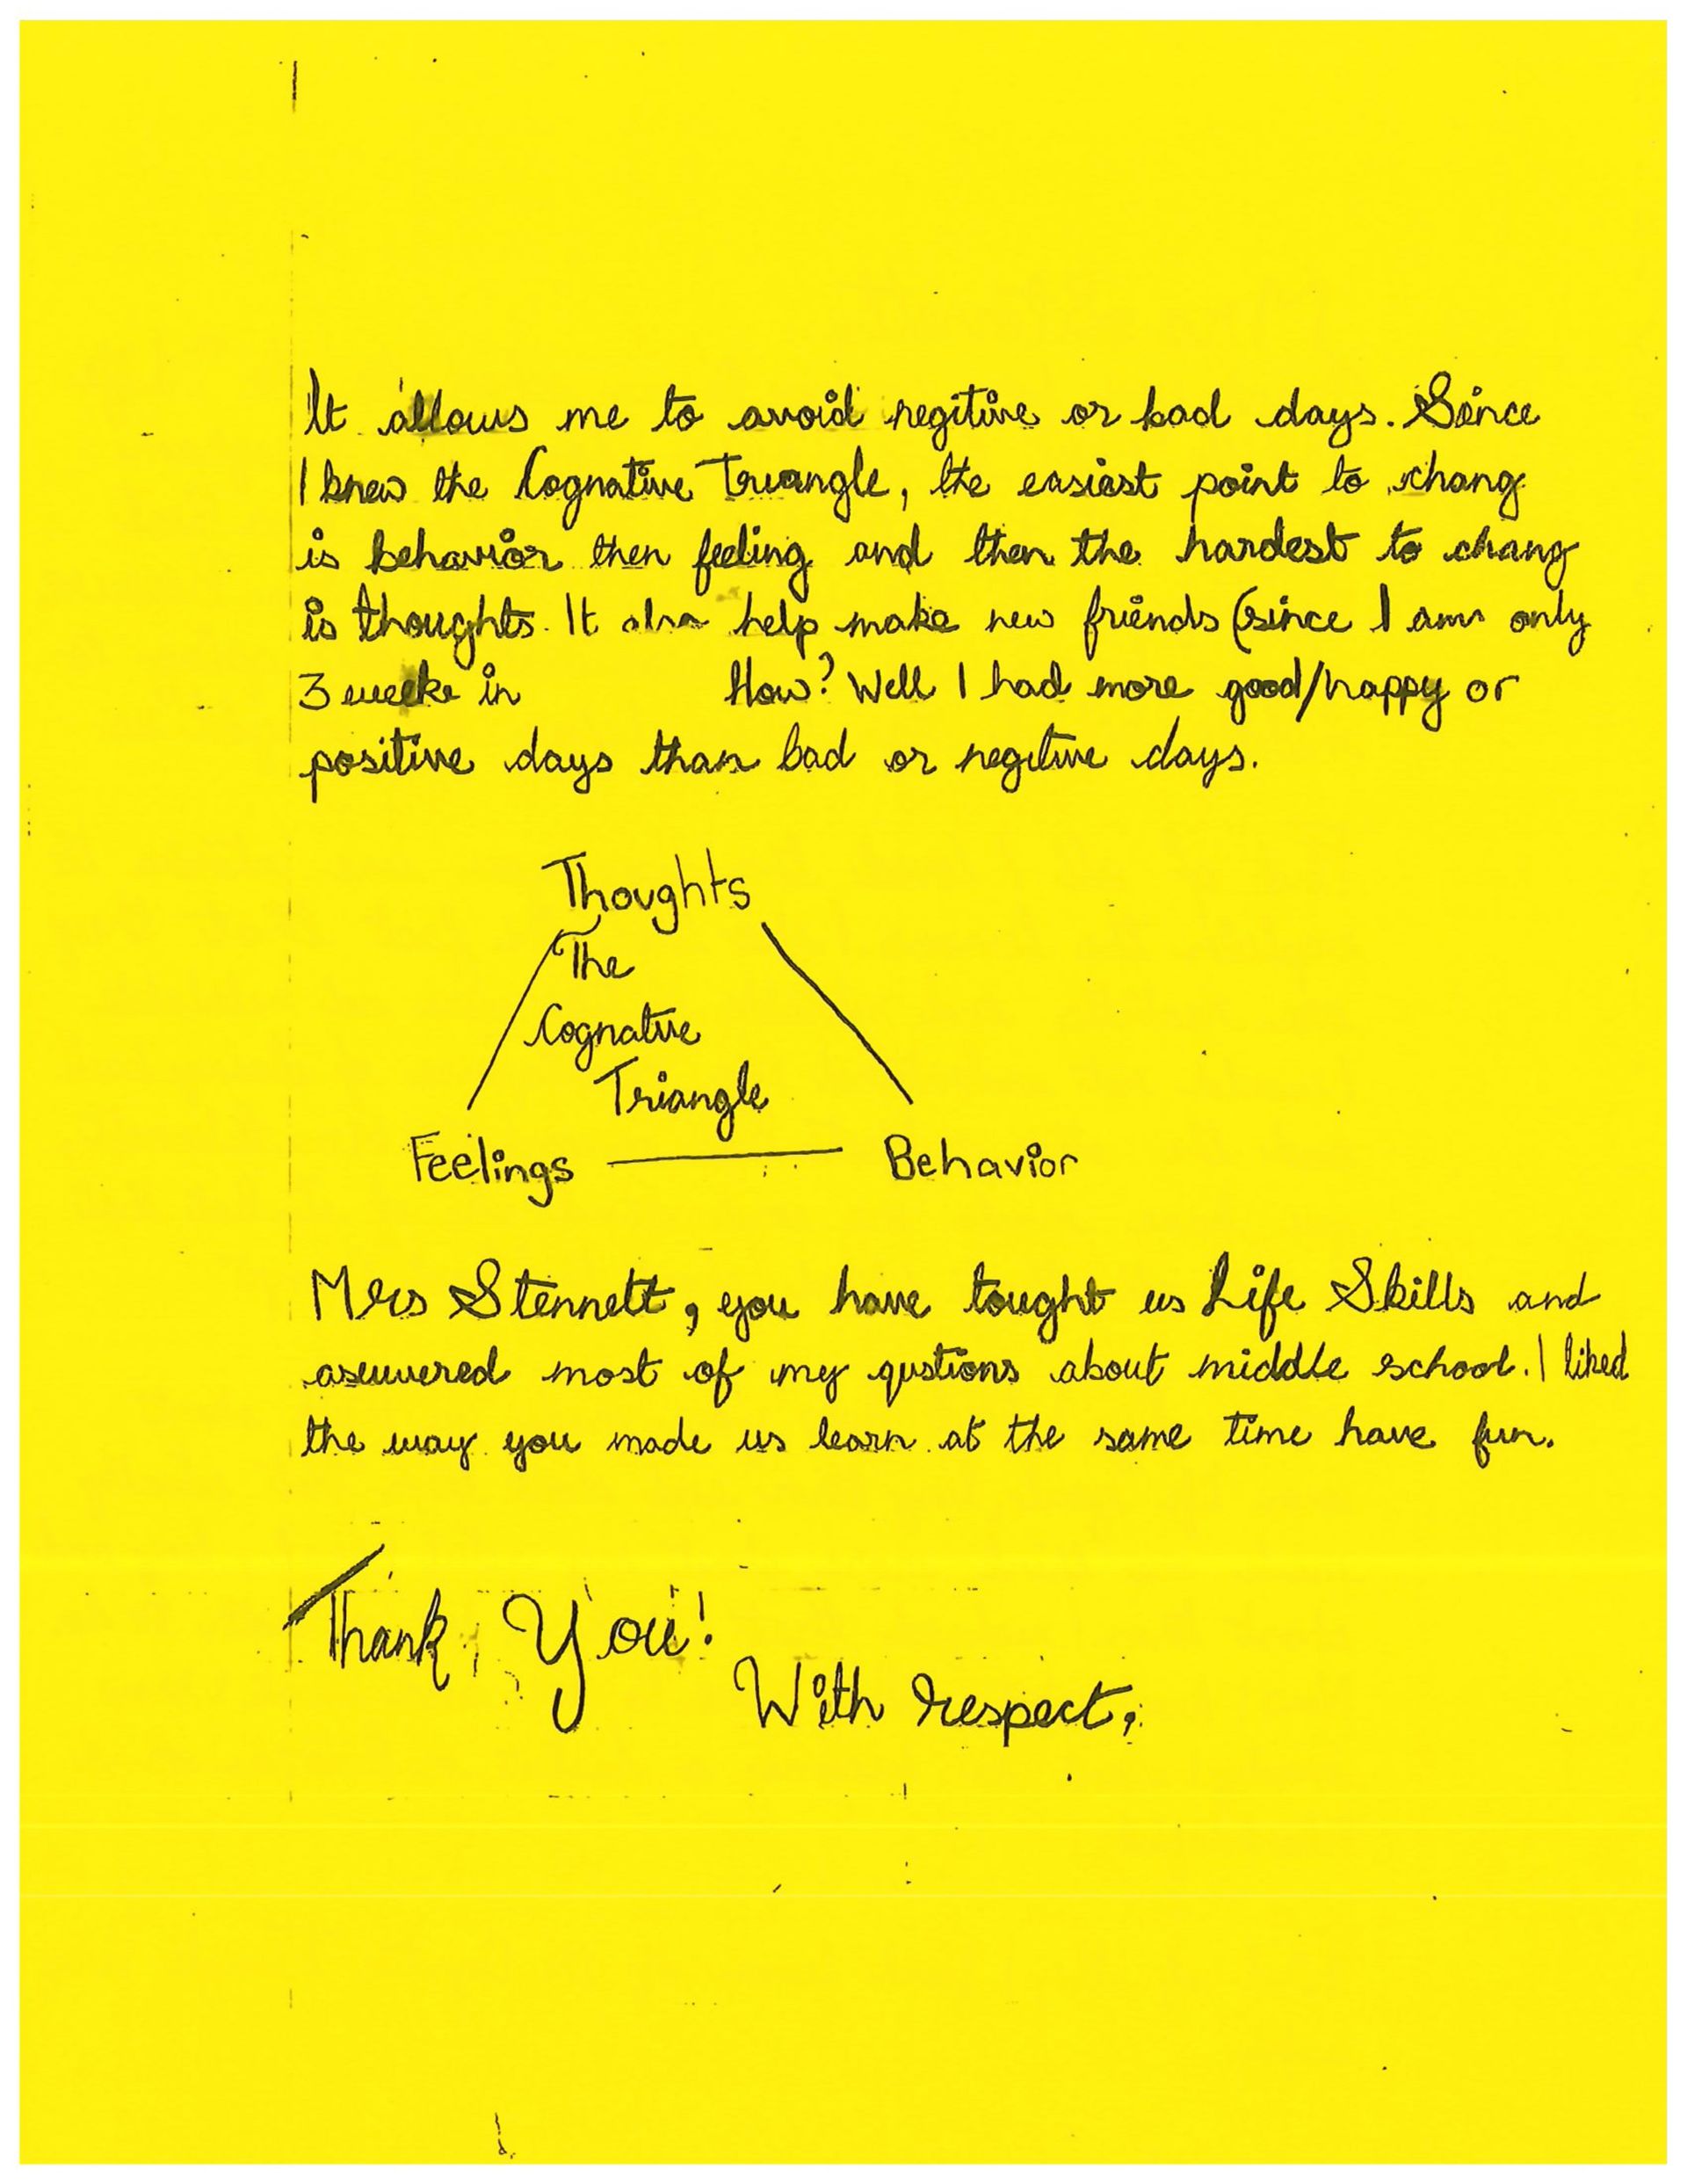 It allows me to avoid negitive or bad days. Since
I knew the Cognative Triangle, the easiest point to chang
is behavior then feeling and then the hardest to chang
is thoughts. It also help make new friends (since I am only
3 weeks in How? Well I had more good/happy or
positive days than bad or negitive days.
Thoughts
The
Cognative
Triangle
Feelings Behavior
Mrs Stennett, you have tought us Life Skills and
asuwered most of my qustions about middle school. I liked
the way you made us learn at the same time have fun.
Thank You!
With respect,